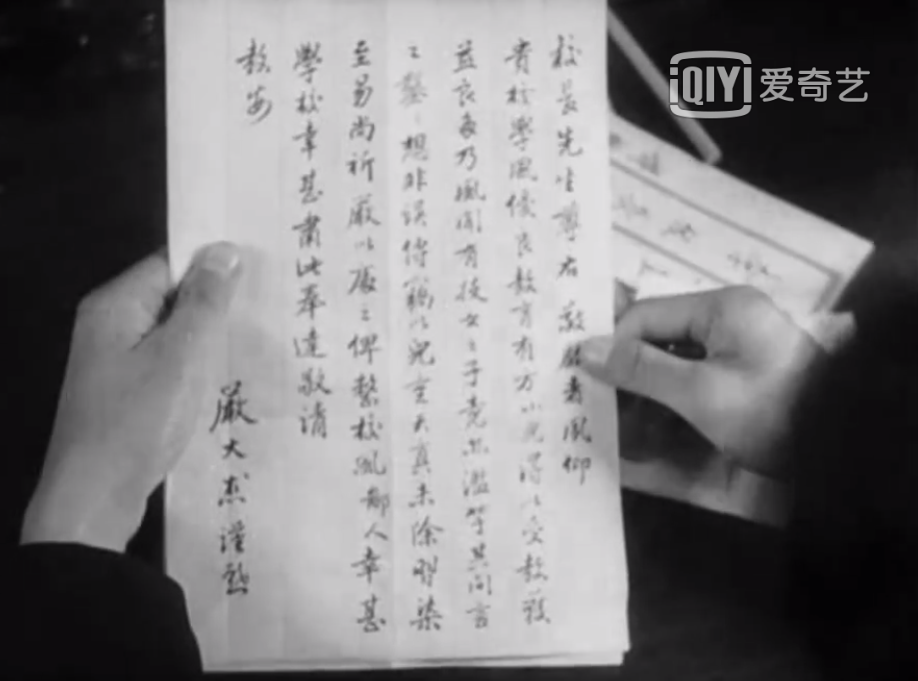 校長先生尊右 敬啟者夙仰
貴校學風優良教育有方小兒得以受教獲
益良多乃風聞有妓女之子竟亦濫竽其間言
之鑿々想非誤傳竊以兒童天真未除習染
至易尚祈嚴以處之俾整校風鄙人幸甚
學校幸甚肅此奉達敬請
教安
嚴大杰謹啟
QIYI 爱奇艺